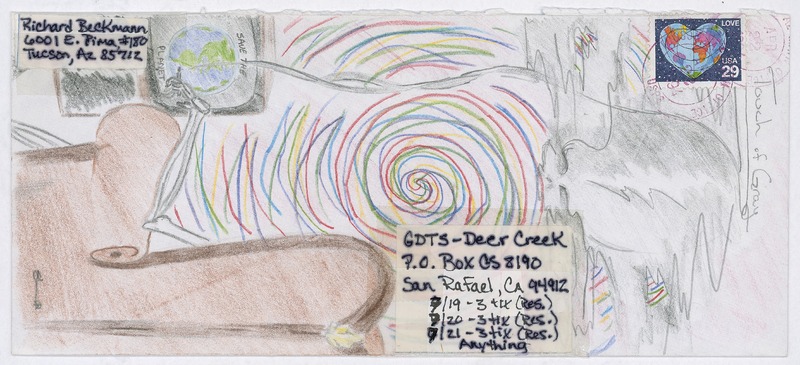 Richard Beckmann
6001 E. Pima #180
Tucson, Az 85712
SAVE THE
PLANET
LOVE
USA
29
Touch of Gray
GDTS - Deer Creek
P.O. Box CS 8190
San Rafael, CA 94912
7/19 - 3 tix (Res.)
7/20 - 3 tix (Res.)
7/21 - 3 tix (Res.)
Anything